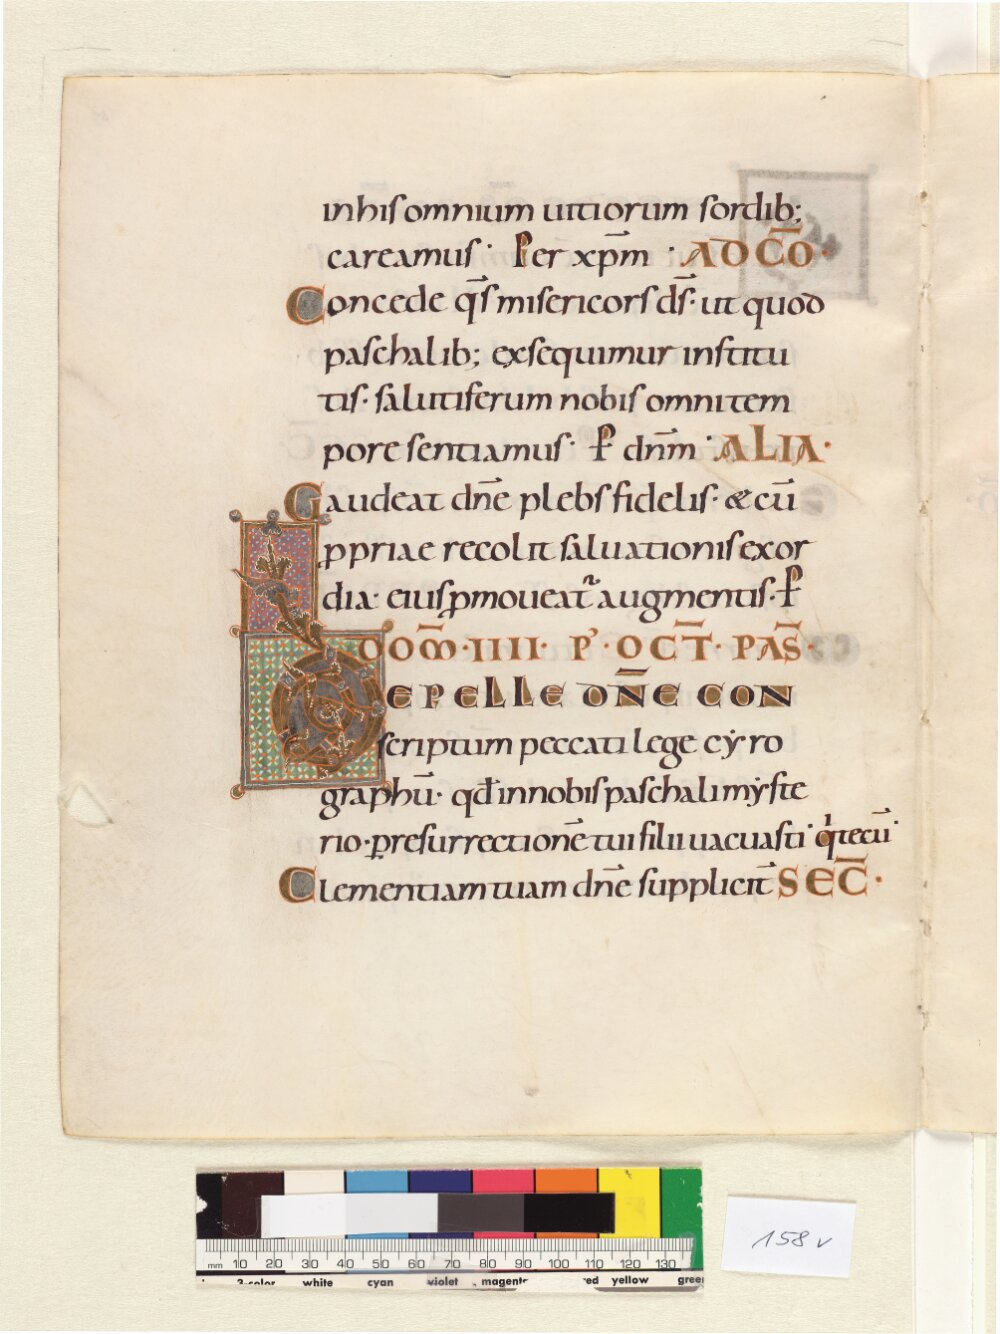 in hiſ omnium uitiorum ſordib;
careamuſ · Per xp̄m · AD C̄O ·
Concede q̄ſ miſericorſ d̄ſ · ut quod
paſchalib; exſequimur inſtitu
tiſ · ſalutiferum nobiſ omni tem
pore ſentiamuſ · P̄ dn̄m · ALIA ·
Gaudeat dn̄e plebſ fidelif · & cū
ꝓpriae recolit ſaluationiſ exor
dia · eiuſ ꝓmoueat᷑ augmentiſ · P̄
DOM̄ · IIII · P' · OCT̄ · PAS̄ ·
DEPELLE DN̄E CON
ſcriptum peccati lege cẏro
graphū · qd̄ in nobiſ paſchali mẏſte
rio · ꝑ reſurrectionē tui filii uacuaſti · q' tecū ·
Clementiam tuam dn̄e ſupplicit̄ SEC̄ ·
mm 10 20 30 40 50 60 70 80 90 100 110 120 130
3-color white cyan violet magenta red yellow green
158 v